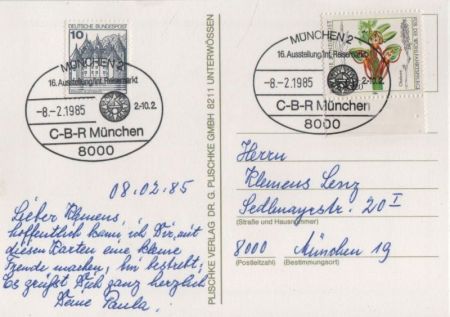 10 DEUTSCHE BUNDESPOST
MÜNCHEN 2
16. Ausstellung/Int. Reisemarkt
-8.-2.1985
2-10.2.
C-B-R München
8000
08.02.85
Lieber Klemens,
hoffentlich kann ich Dir mit
diesen Karten eine kleine
Freude machen, bin bestrebt;
Es grüßt Dich ganz herzlich
Deine Paula.
PLISCHKE VERLAG DR. G. PLISCHKE GMBH 8211 UNTERWÖSSEN
MÜNCHEN 2
16. Ausstellung/Int. Reisemarkt
-8.-2.1985
2-10.2.
C-B-R München
8000
FÜR DIE WOHLFAHRTSPFLEGE
Herrn
Klemens Lenz
Sedlmayrstr. 20 I
(Straße und Hausnummer)
8000 München 19
(Postleitzahl) (Bestimmungsort)